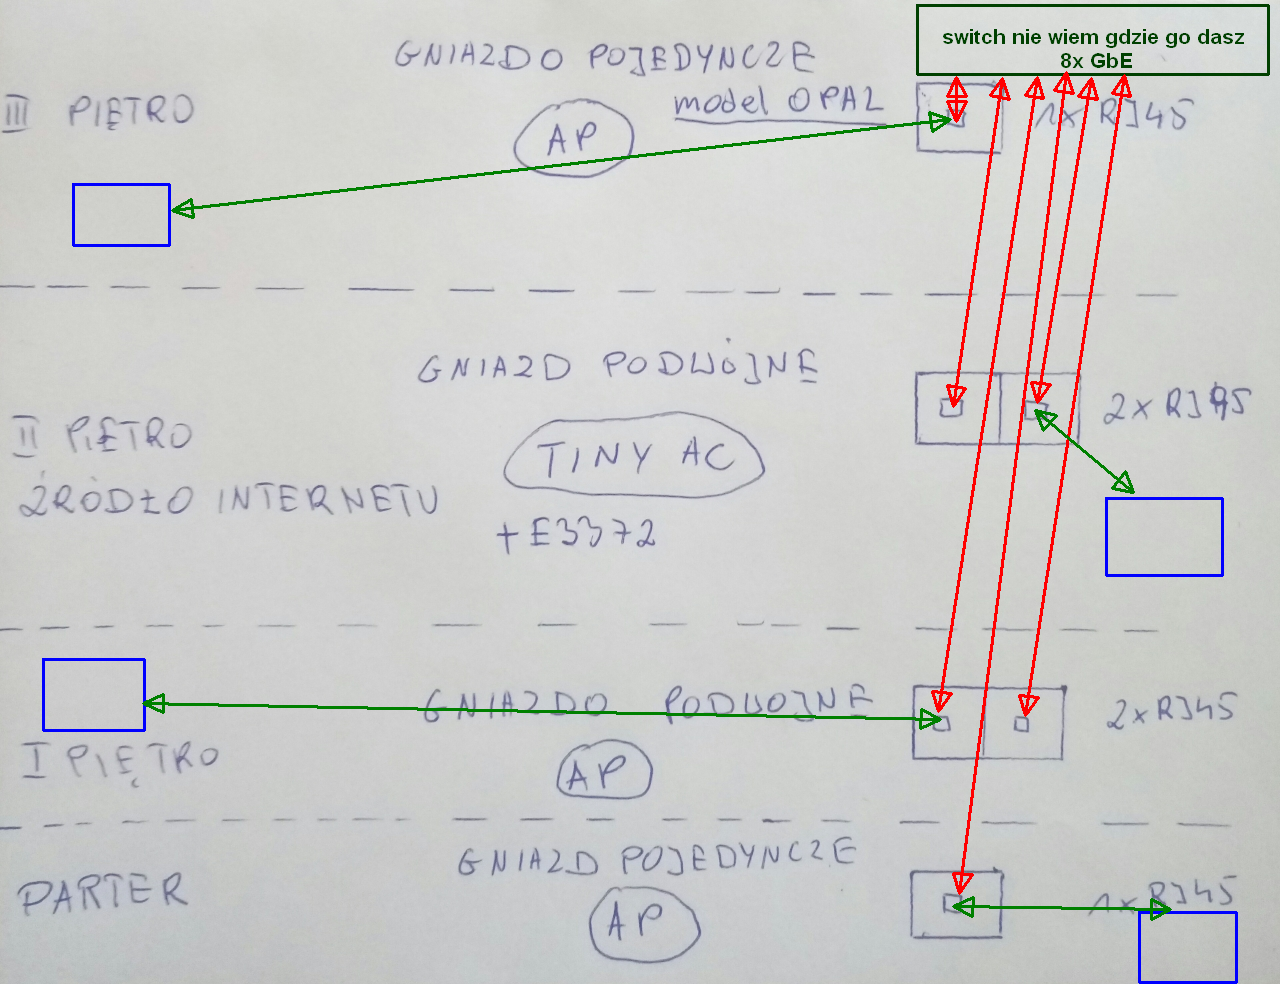 switch nie wiem gdzie go dasz
8x GbE
GNIAZDO POJEDYNCZE
III PIĘTRO
model OPAL
AP
1x RJ45
GNIAZD PODWÓJNE
II PIĘTRO
2x RJ45
TINY AC
ŹRÓDŁO INTERNETU
+E3372
GNIAZDO PODWOJNE
2xRJ45
I PIĘTRO
AP
GNIAZD POJEDYNCZE
PARTER
1xRJ45
AP